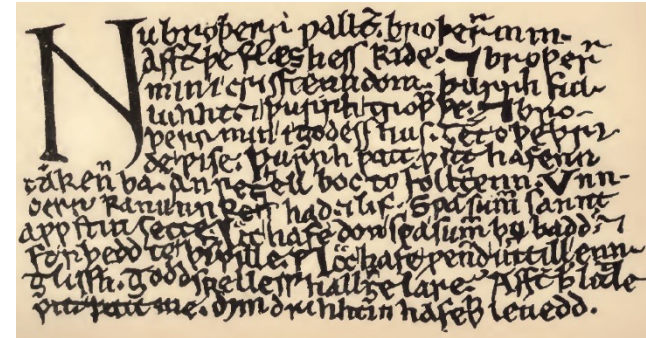 Nu broþerr ƿallt̄. broþerr min.
Afft̄ þe flæshess kinde. ⁊ broþerr
min i crisstenndom. þurrh ful-
luhht. ⁊ þurrh troƿƿþe. ⁊ bro-
þerr min i godess hus. ȝet o þe þri-
de ƿise. þurrh þatt ƿitt hafenn
takenn ba. an reȝhell boc to follȝhenn. Unn-
derr kanunnkess had. ⁊ lif. Sƿa summ sannt
aƿƿstin sette. Icc hafe don sƿa summ þu badd. ⁊
forþedd te þin ƿille. Icc hafe ƿennd inntill enn-
glissh. goddspelless hallȝhe lare. Afft̄ þatt litle
ƿitt þatt me. min drihhtin hafeþþ lenedd.